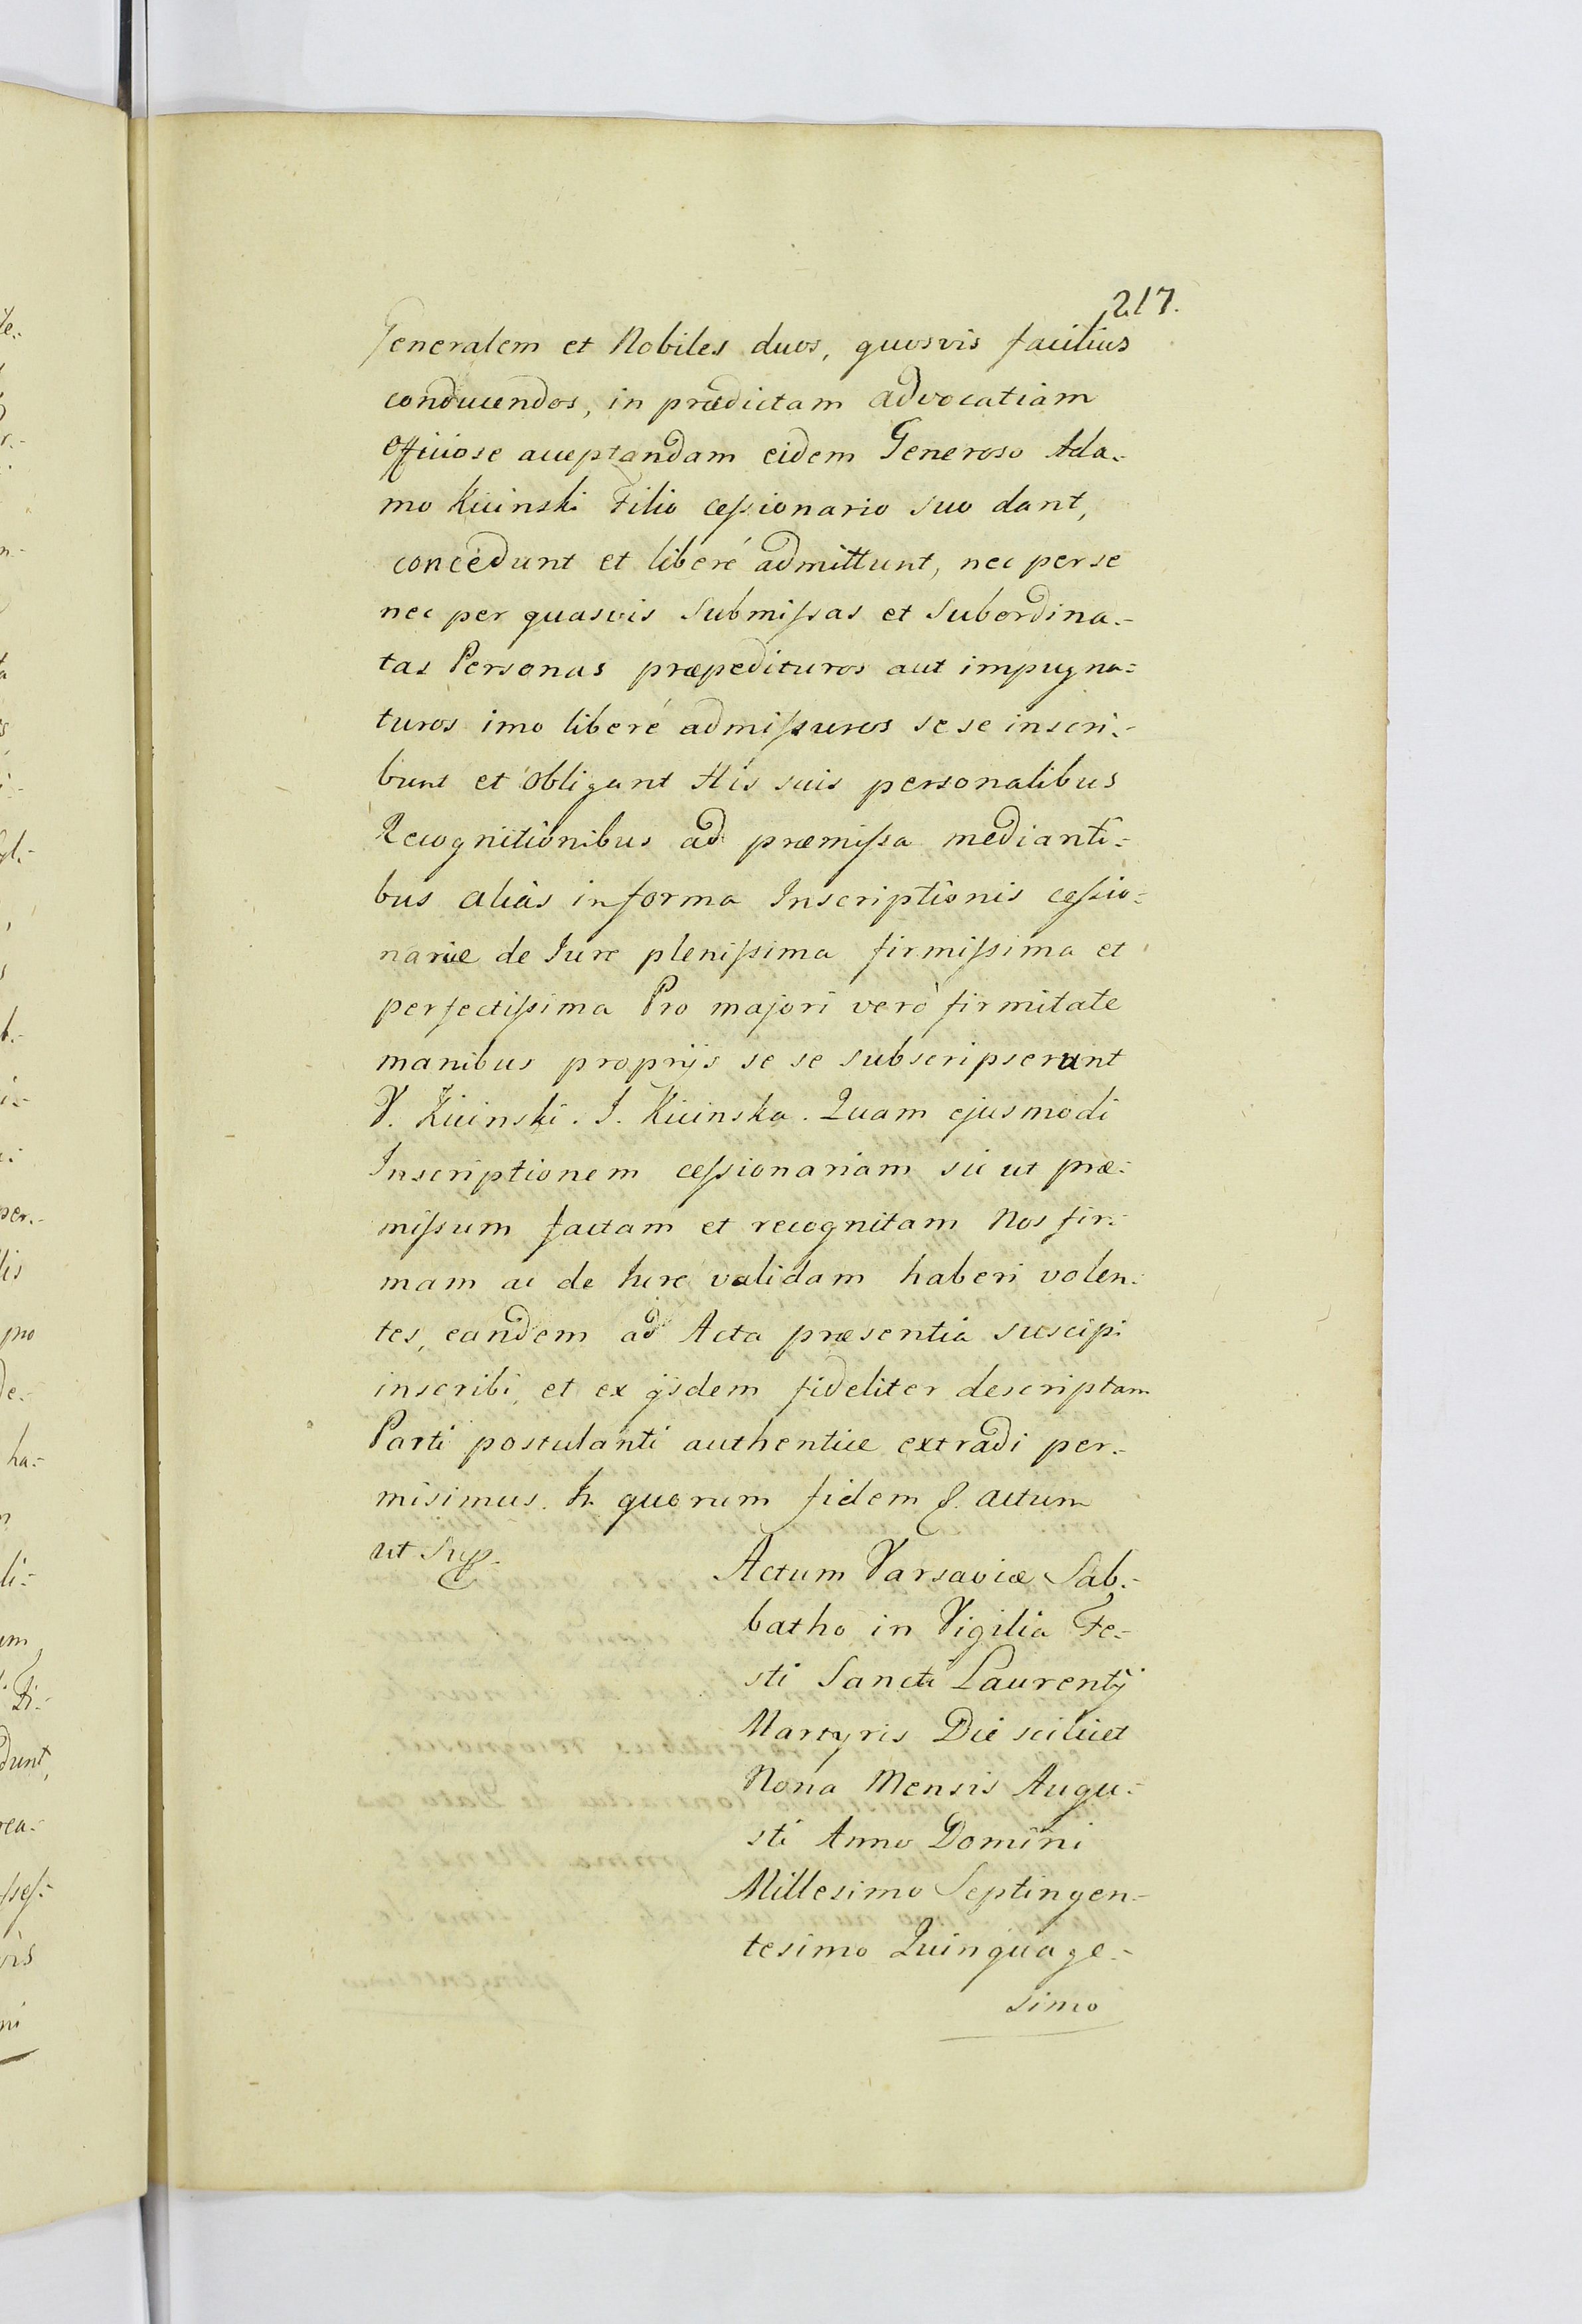 217.
Generalem et Nobiles duos, quosvis facilius
conducendos, in prædictam advocatiam
Officiose acceptandam eidem Generoso Ada-
mo Kicinski Filio cessionario suo dant,
concedunt et liberé admittunt, nec per se
nec per quasvis Submissas et Subordina-
tas Personas præpedituros aut impugna-
turos imo liberé admissuros se se inscri-
bunt et obligant His suis personalibus
Recognitionibus ad præmissa medianti-
bus aliàs in forma Inscriptionis cessio-
nariæ de Iure plenissima firmissima et
perfectissima Pro majori verò firmitate
manibus proprijs se se subscripserunt
V. Kicinski. I. Kicinska. Quam ejusmodi
Inscriptionem cessionariam sic ut præ-
missum factam et recognitam Nos fir-
mam ac de Iure validam haberi volen-
tes, eandem ad Acta præsentia suscipi
inscribi, et ex ijsdem fideliter descriptam
Parti postulanti authentice extradi per-
misimus. In quorum fidem &. actum
ut Sup.
Actum Varsaviæ Sab-
batho in Vigilia Fe-
sti Sancti Laurentij
Martyris Die scilicet
Nona Mensis Augu-
sti Anno Domini
Millesimo Septingen-
tesimo Quinquage-
simo